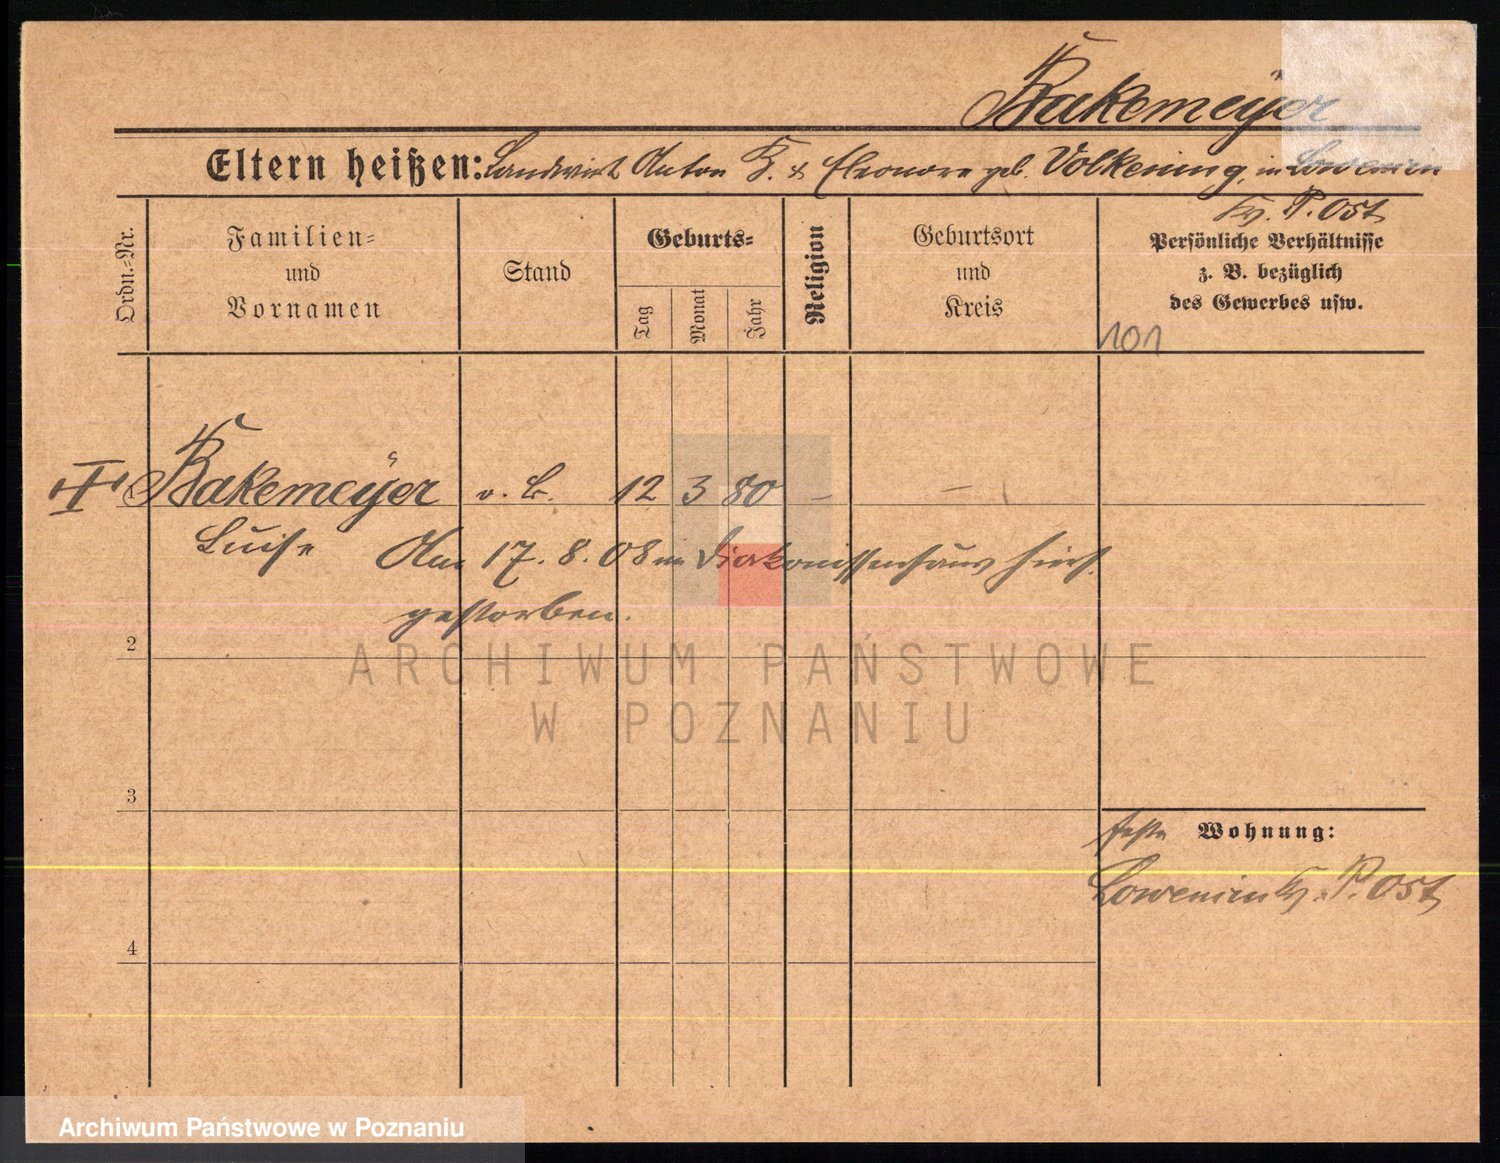 Bakemeÿer
Eltern heißen: Landwirt Anton B. & Eleonore geb. Volkening, in Lowencin
Kr. P. Ost
Ordn.=Nr.
Familien=
und
Vornamen
Stand
Geburts=
Tag
Monat
Jahr
Religion
Geburtsort
und
Kreis
Persönliche Verhältnisse
z. B. bezüglich
des Gewerbes usw.
101
Bakemeÿer
o. B. 12 3 80 – –
Luise
Am 17. 8. 08 im Diakonissenhaus hies.
gestorben.
2
3
4
feste Wohnung:
Lowencin Kr. P. Ost
ARCHIWUM PAŃSTWOWE
W POZNANIU
Archiwum Państwowe w Poznaniu